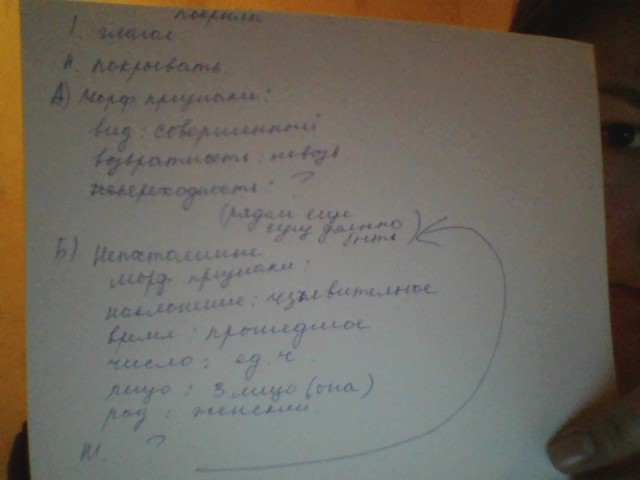 покрыла
I. глагол
II. покрывать
А) Морф. признаки:
вид: совершенной
возвратность: невозв
переходность: ?
(рядом еще
сущ должно
быть)
Б) Непостоянные
морф. признаки:
наклонение: изъявительное
время: прошедшее
число: ед. ч
лицо: 3 лицо (она)
род: женский
III. ?